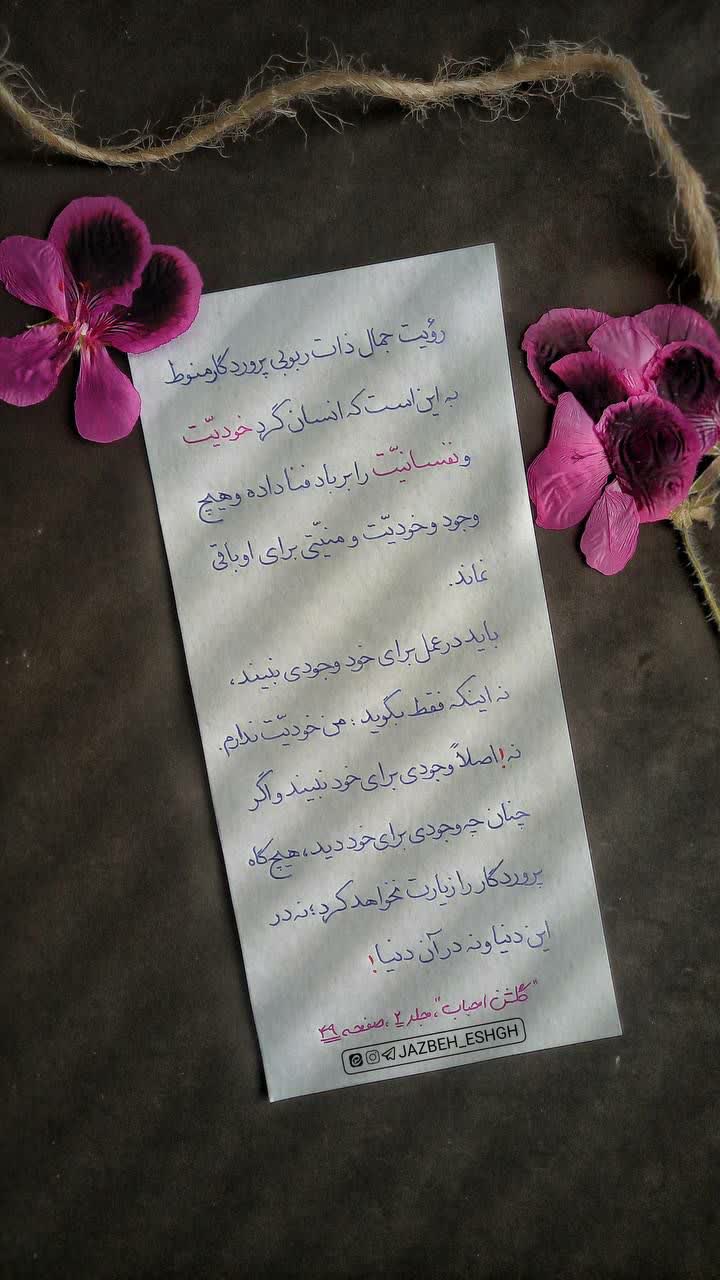 رؤیت جمال ذات ربوبی پروردگار منوط
به این است که انسان گرد خودیّت
و نفسانیّت را بر باد فنا داده و هیچ
وجود و خودیّت و منیّتی برای او باقی
نماند.
باید در عمل برای خود وجودی نبیند،
نه اینکه فقط بگوید: من خودیّت ندارم.
نه! اصلاً وجودی برای خود نبیند و اگر
چنان چه وجودی برای خود دید، هیچ گاه
پروردگار را زیارت نخواهد کرد؛ نه در
این دنیا و نه در آن دنیا!
"گلشن احباب"، جلد ۲، صفحه ۴۹
JAZBEH_ESHGH